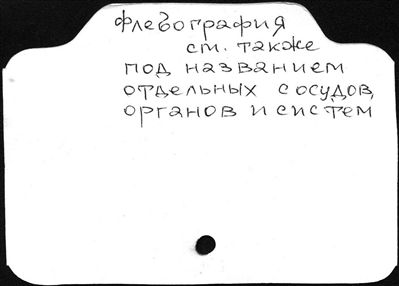 Флебография
см. также
под названием
отдельных сосудов,
органов и систем